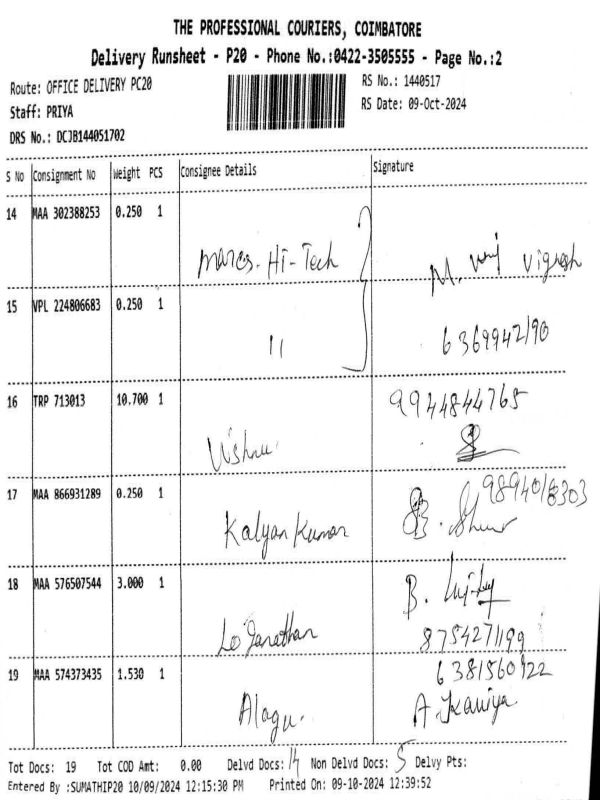 THE PROFESSIONAL COURIERS, COIMBATORE
Delivery Runsheet - P20 - Phone No.:0422-3505555 - Page No.:2
Route: OFFICE DELIVERY PC20 RS No.: 1440517
Staff: PRIYA RS Date: 09-Oct-2024
DRS No.: DCJB144051702
S No Consignment No Weight PCS Consignee Details Signature
14 MAA 302388253 0.250 1
Mares. Hi-Tech M. Vignesh
15 VPL 224806683 0.250 1
11 6369942190
16 TRP 713013 10.700 1 9944844765
Vishnu
17 MAA 866931289 0.250 1 9894018303
Kalyan Kumar
18 MAA 576507544 3.000 1 B.
Loganathan 8754271199
19 MAA 574373435 1.530 1 6381560922
Alagu. A. Kaniya
Tot Docs: 19 Tot COD Amt: 0.00 Delvd Docs: 14 Non Delvd Docs: 5 Delvy Pts:
Entered By :SUMATHIP20 10/09/2024 12:15:30 PM Printed On: 09-10-2024 12:39:52